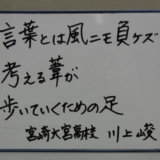 言葉とは風ニモ負ケズ
考える葦が
歩いていくための足
宮崎大宮高校 川上峻